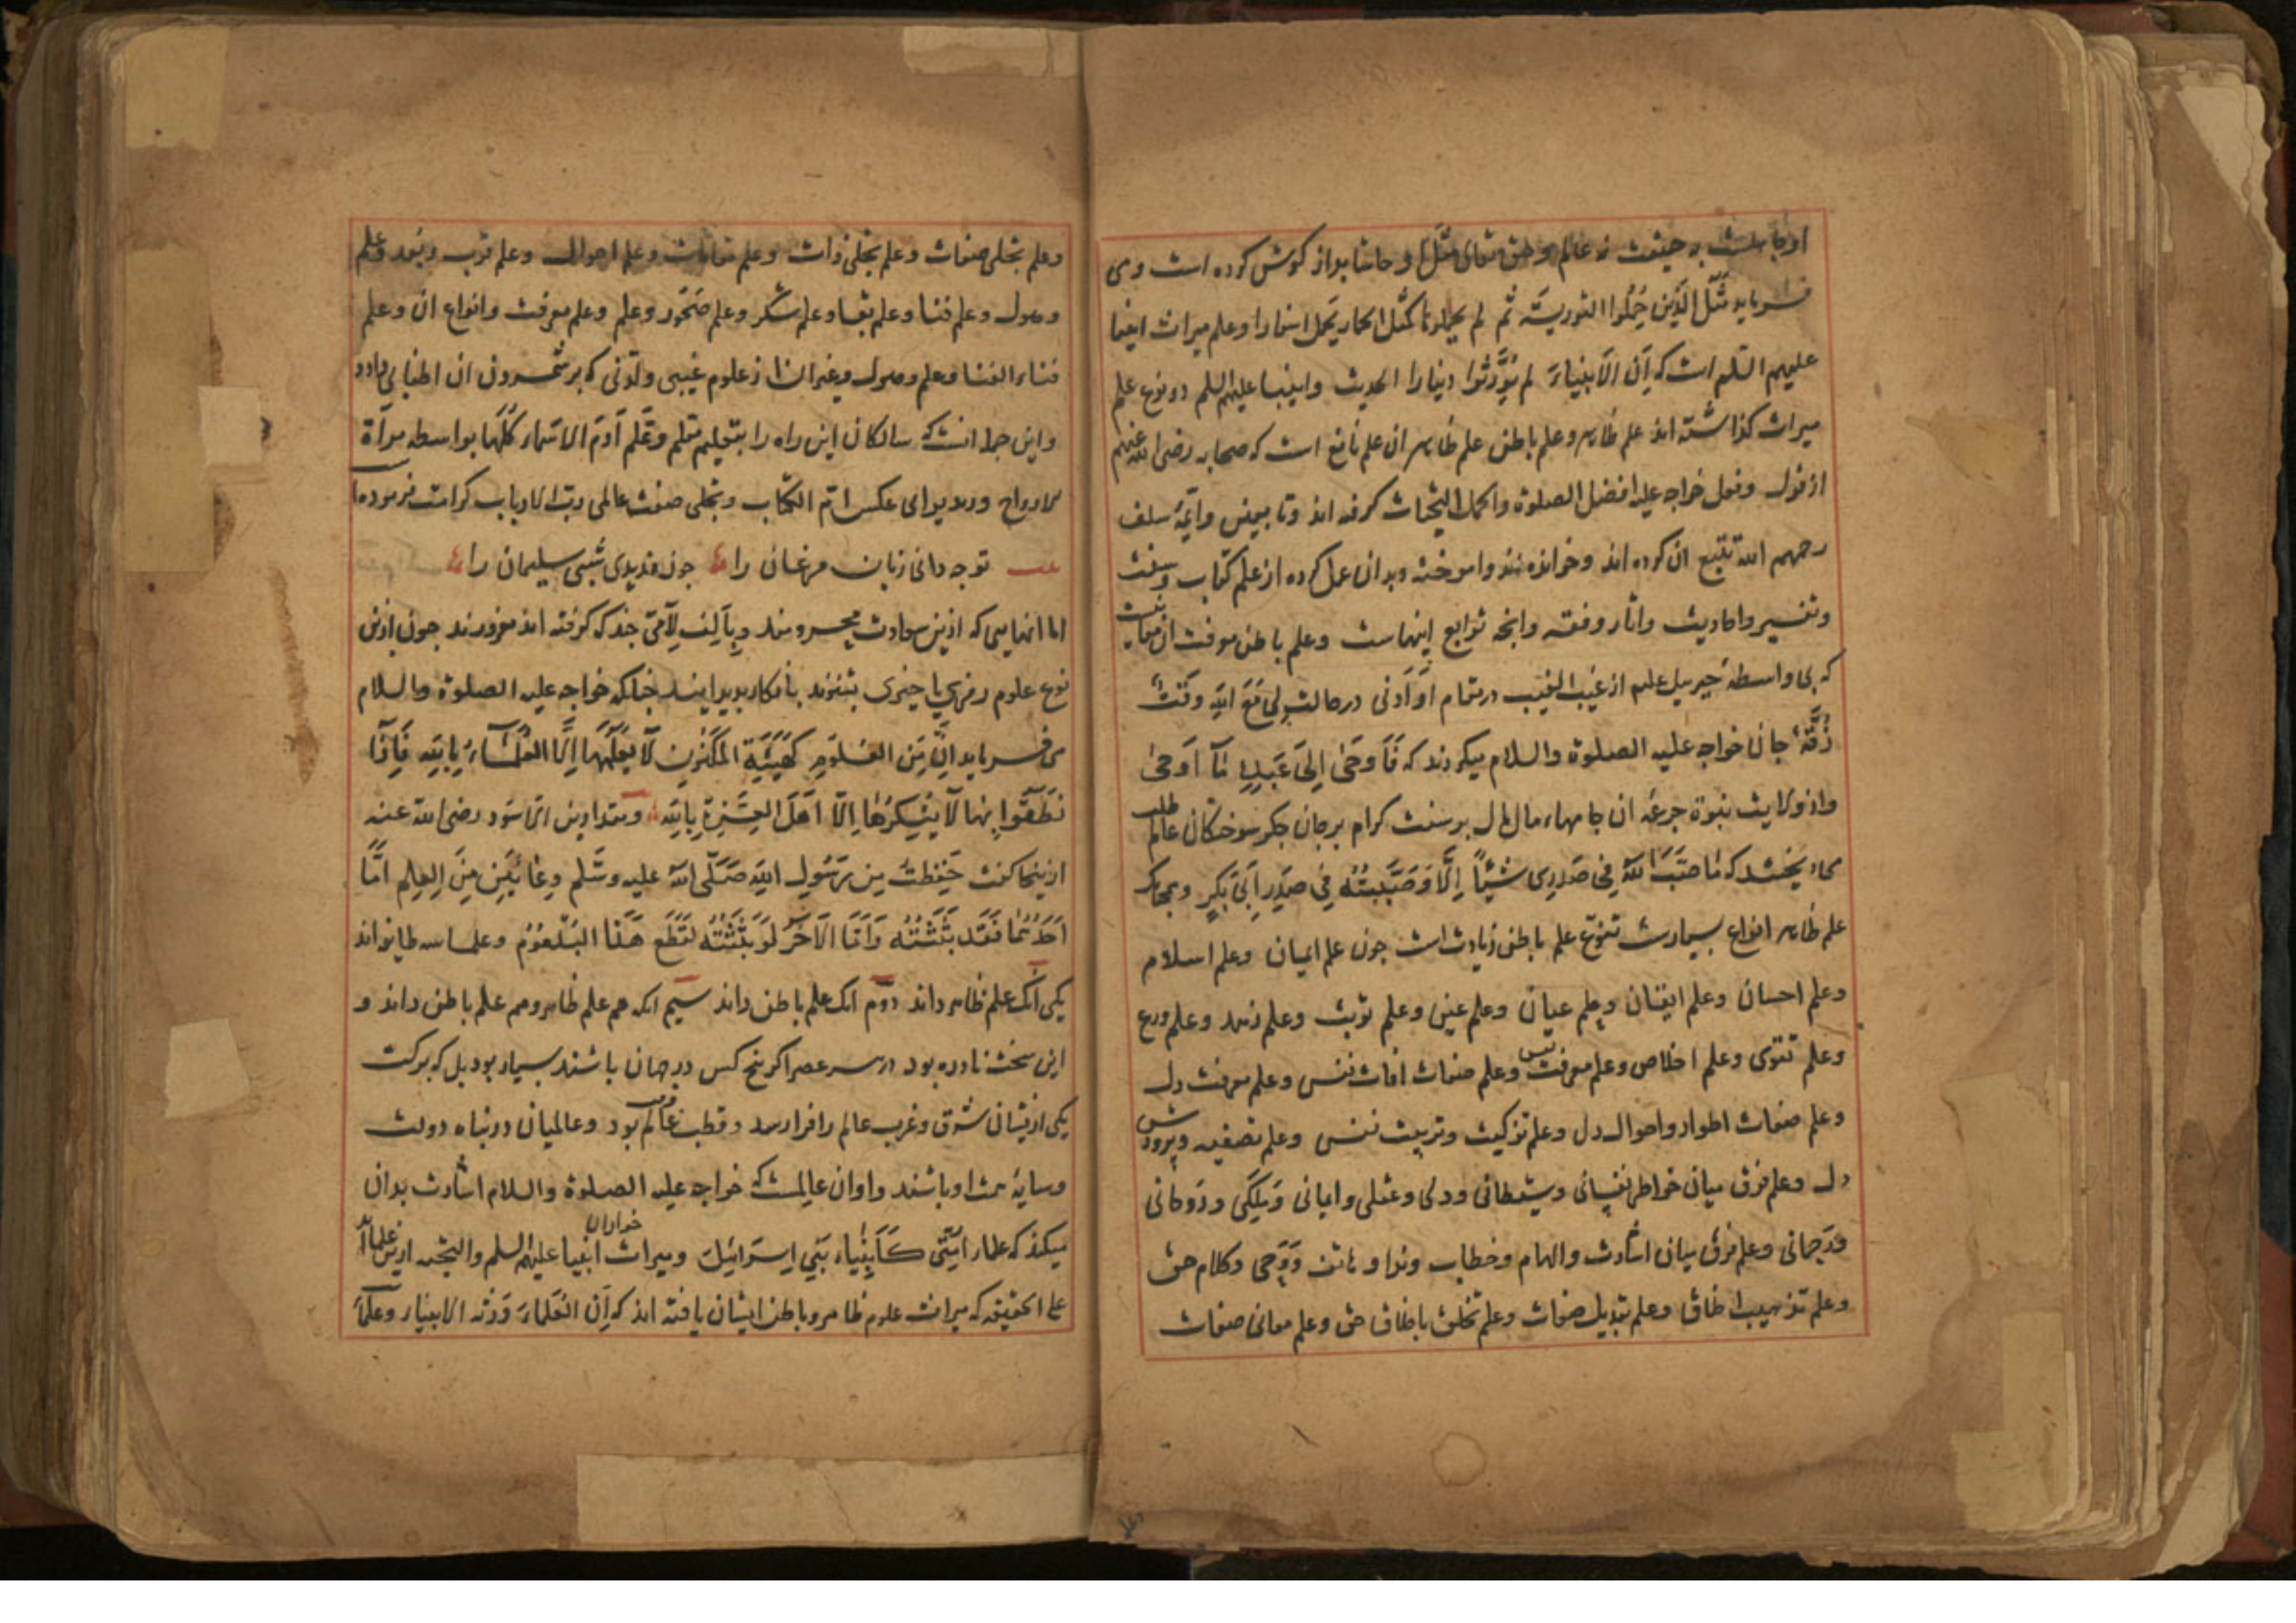 او جاهلست به حقیقت نه عالم و حق تعالی مثل او حاشا بدراز کوش کرده است و می
فرماید مَثَلُ الَّذِینَ حُمِّلُوا التوریة ثُم لم یحملوها کَمَثَل الحمار یحمل اسفارا و علم میراث انبیا
علیهم السلم است که اِن الاَنبیاءَ لم یُوَرِّثُوا دینارا الحدیث و انبیا علیهم السلم دو نوع علم
میراث کذاشته اند علم ظاهر و علم باطن علم ظاهر ان علم نافع است که صحابه رضی الله عنهم
از قول و فعل خواجه علیه افضل الصلوة و اکمل التحیات کرفته اند و تابعین و ایمّهٔ سلف
رحمهم الله تتبع ان کرده اند و خوانده اند و اموخته و بدان عمل کرده از علم کتاب و سنت
و تفسیر و احادیث و اثار و فقه و انجه توابع اینهاست و علم باطن معرفت ان
که بی واسطهٔ جبرییل علیه از غیب الغیب در مقام اَو اَدنی در حالت لِی مَعَ الله وَقتٌ
زُقّهٔ جان خواجه علیه الصلوة والسلام میکردند که فَاَوحَی اِلَی عَبدِهِ مَا اَوحَی
و از ولایت نبوة جرعهٔ ان جامهاء مال مال بر سنت کرام بر جان جکر سوختکان عالم طلب
می‌بخشد که مَا صَبَّ اللهُ فِی صَدرِی شَیئًا اِلَّا وَصَبَبتُهُ فِی صَدرِ اَبِی بَکرٍ و همجنانک
علم ظاهر انواع بسیارست تنوّع علم باطن زیادت است جون علم ایمان و علم اسلام
و علم احسان و علم ایقان و علم عیان و علم عین و علم توبت و علم زهد و علم ورع
و علم تقوی و علم اخلاص و علم معرفت نفس و علم صفات افات نفس و علم معرفت دل
و علم صفات اطوار و احوال دل و علم تزکیت و تربیت نفس و علم تصفیه و پرورش
دل و علم فرق میان خواطر نفسانی و شیطانی و دلی و عقلی و ایمانی و مَلَکی و رَوحانی
و رَحمانی و علم فرق میان اشارت و الهام و خطاب و ندا و هاتف و وَحی و کلام حق
و علم تهذیب اخلاق و علم تبدیل صفات و علم تخلق باخلاق حق و علم معانی صفات
و علم تجلی صفات و علم تجلی ذات و علم مقامات و علم احوال و علم قرب و بعد و علم
وصول و علم فنا و علم بقا و علم سُکر و علم صَحْو و علم و علم معرفت و انواع ان و علم
فناء الفنا و علم وصول و غیر ان از علوم غیبی و لدنی که بر شمردن ان اطنابی دارد
و این جمله انست که سالکان این راه را بتعلیم معلم وَعَلَّمَ اٰدَمَ الاَسماءَ کُلَّهَا بواسطه مراة
توجه دانی زبان مرغان را جون ندیدی شبی سلیمان را
اما انهایی که ازین سعادت محرومند و بِاَلِف لامی جند که کرفته اند مغرورند جون ازین
نوع علوم رمزی یا خبری بشنوند بانکار بدید ایند جنانکه خواجه علیه الصلوة والسلام
می فرماید اِنَّ مِنَ العُلُومِ کَهَیئَةِ المَکنُونِ لَا یَعلَمُهَا اِلَّا العُلَمَاءُ بِاللهِ فَاِذَا
نَطَقُوا بِهَا لَا یُنکِرُهَا اِلَّا اَهلُ العِزَّةِ بِاللهِ و مقداد بن الاسود رضی الله عنه
ازینجا کفت حَفِظتُ مِن رَسُولِ اللهِ صَلَّی الله علیه وسَلم وِعَائَینِ مِنَ العِلمِ اَمَّا
اَحَدُهُمَا فَقَد بَثَثتُهُ وَاَمَّا الاٰخَر لَو بَثَثتُهُ لَقُطِعَ هَذَا البُلعُومُ و علما سه طایفه اند
یکی انک علم ظاهر داند دوم انک علم باطن داند سیم انکه هم علم ظاهر و هم علم باطن داند و
این سخت نادره بود در هر عصر اکر پنج کس در جهان باشند بسیار بود بل که برکت
یکی ازیشان شرق و غرب عالم را فرا رسد و قطب عالم بود و عالمیان در پناه دولت
و سایهٔ همت او باشند و او ان عالمست که خواجه علیه الصلوة والسلام اشارت بدان
میکند که علماء اُمَّتِی کَاَنبِیَاء بَنِی اِسرَائِیلَ و میراث خواران انبیا علیهم السلم والتحیه ازین علما اند
علی الحقیقه که میراث علوم ظاهر و باطن ایشان یافته اند که اِن العُلَماءَ وَرَثَه الانبیاء و علماء